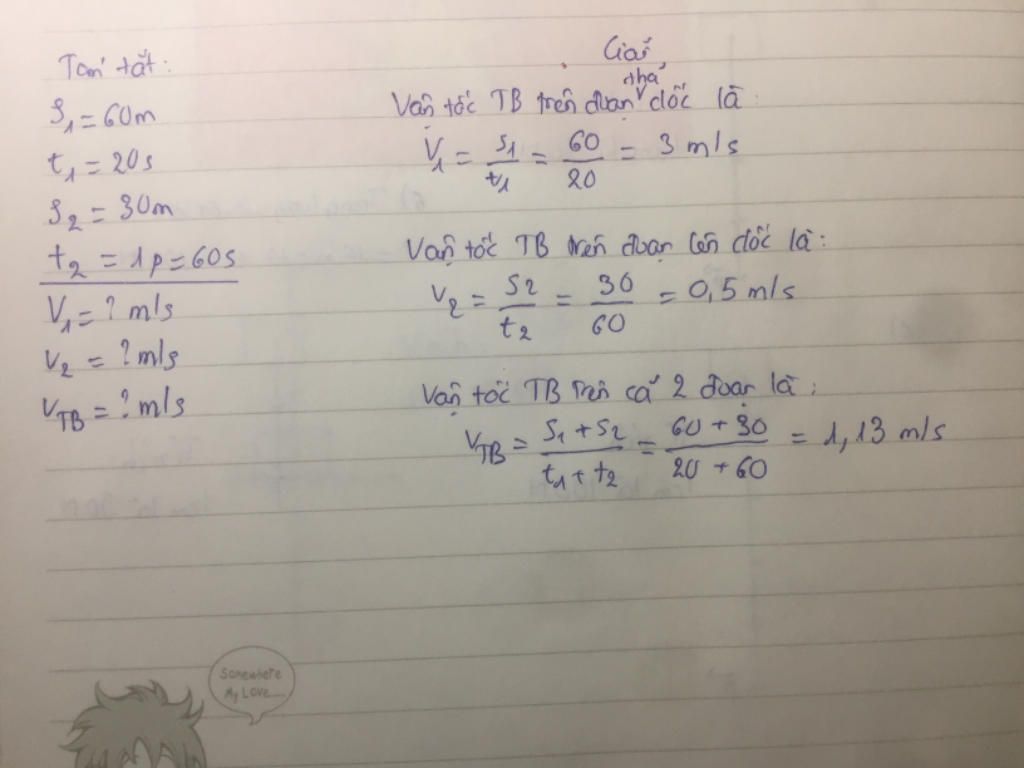 Tóm tắt:
S₁ = 60m
t₁ = 20s
S₂ = 30m
t₂ = 1p = 60s
V₁ = ? m/s
V₂ = ? m/s
V_TB = ? m/s
Giải
Vận tốc TB trên đoạn nhả dốc là:
V₁ = S₁/t₁ = 60/20 = 3 m/s
Vận tốc TB trên đoạn lên dốc là:
V₂ = S₂/t₂ = 30/60 = 0,5 m/s
Vận tốc TB trên cả 2 đoạn là:
V_TB = (S₁ + S₂)/(t₁ + t₂) = (60 + 30)/(20 + 60) = 1,13 m/s
Somewhere
My Love....